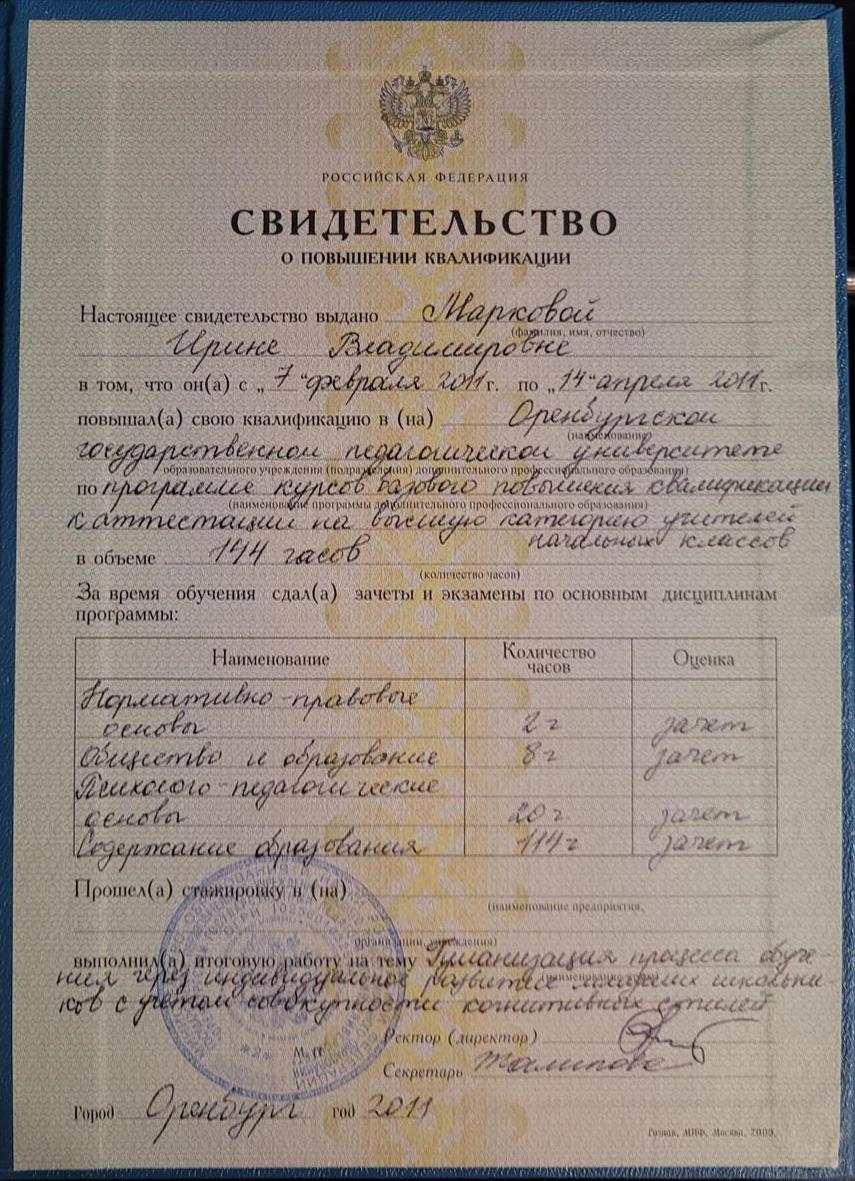 РОССИЙСКАЯ ФЕДЕРАЦИЯ
СВИДЕТЕЛЬСТВО
О ПОВЫШЕНИИ КВАЛИФИКАЦИИ
Настоящее свидетельство выдано Марковой
(фамилия, имя, отчество)
Ирине Владимировне
в том, что он(а) с „7“ февраля 2011г. по „14“ апреля 2011г.
повышал(а) свою квалификацию в (на) Оренбургском
(наименование
государственном педагогическом университете
образовательного учреждения (подразделения) дополнительного профессионального образования)
по программе курсов базового повышения квалификации
(наименование программы дополнительного профессионального образования)
к аттестации на высшую категорию учителей
начальных классов
в объеме 144 часов
(количество часов)
За время обучения сдал(а) зачеты и экзамены по основным дисциплинам
программы:
Наименование Количество часов Оценка
Нормативно-правовые
основы 2 г зачет
Общество и образование 8 г зачет
Психолого-педагогические
основы 20 г зачет
Содержание образования 114 г зачет
Прошел(а) стажировку в (на)
(наименование предприятия,
организации, учреждения)
выполнил(а) итоговую работу на тему Гуманизация процесса обуче-
ния через индивидуальное развитие младших школьни-
ков с учетом совокупности когнитивных стилей
Ректор (директор)
М. П.
Секретарь
Город Оренбург год 2011
Гознак, МПФ, Москва, 2009.